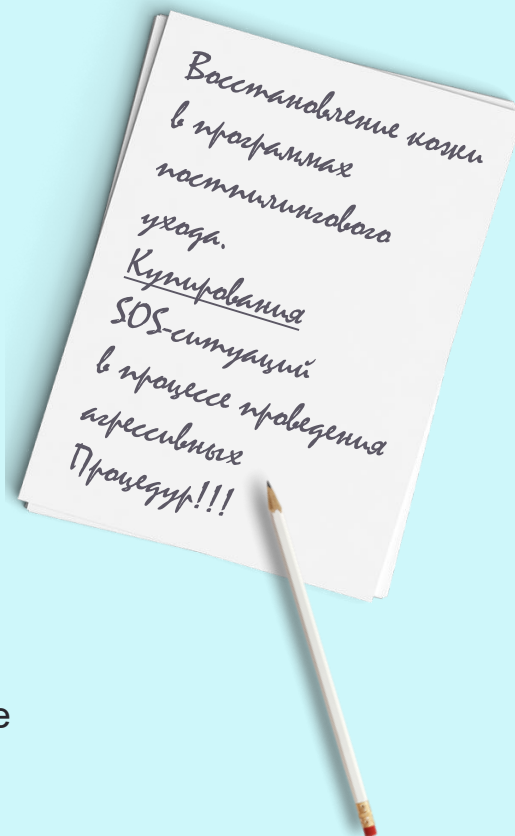 Восстановление кожи
в программах
постпилингового
ухода.
Купирования
SOS-ситуаций
в процессе проведения
агрессивных
Процедур!!!
е